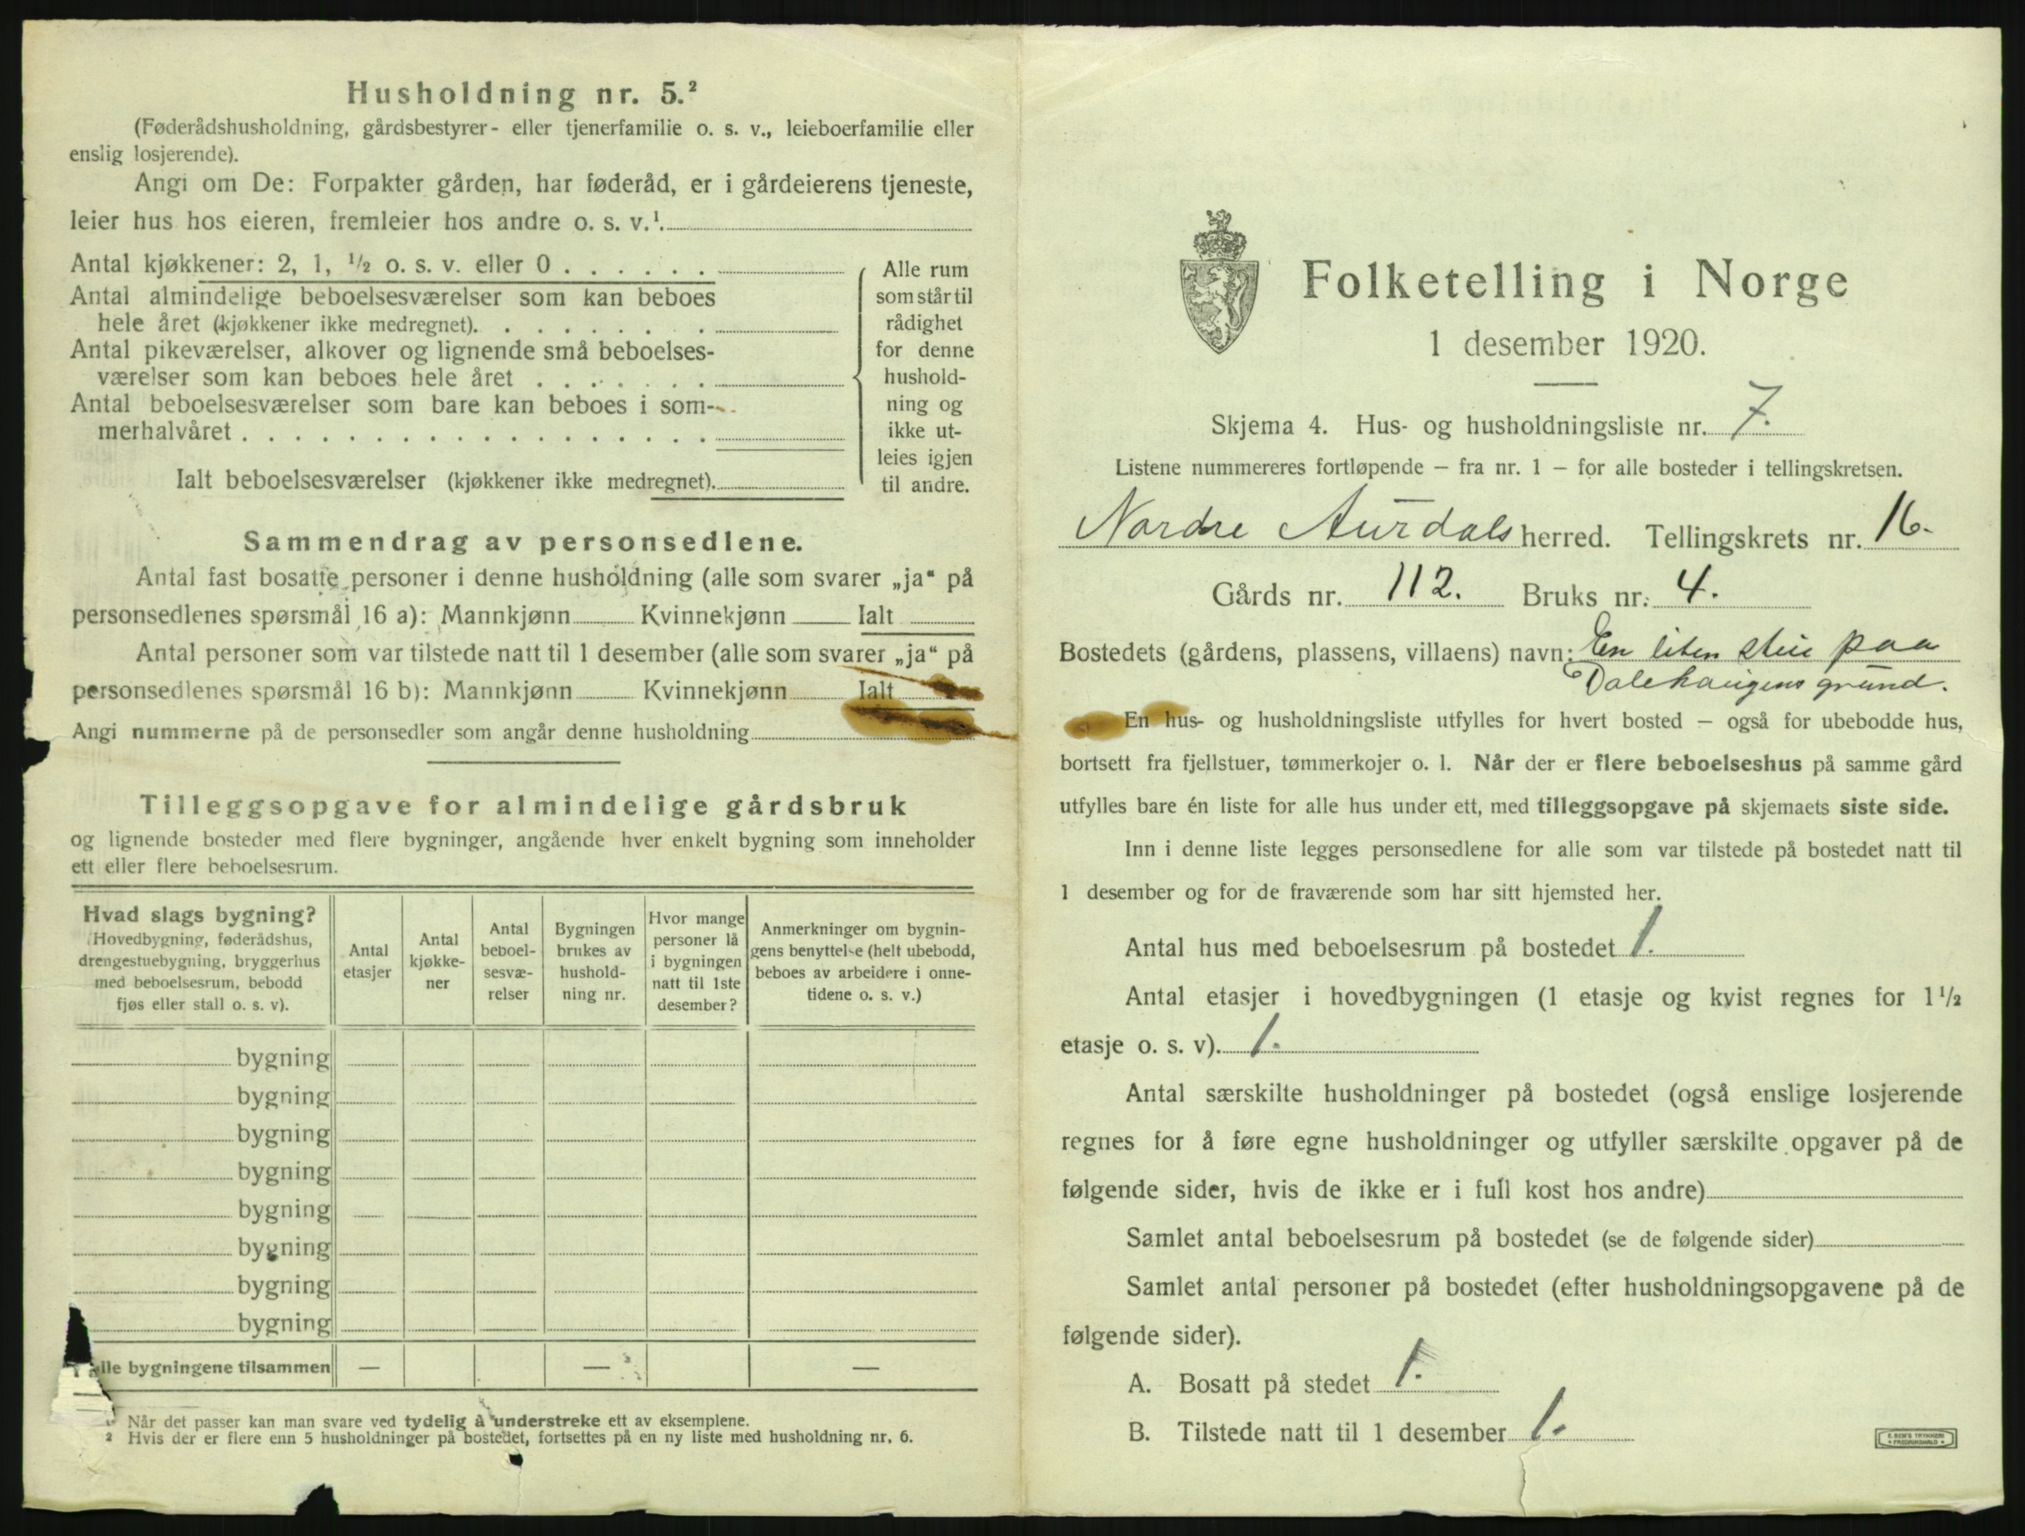 Husholdning nr. 5.²
(Føderådshusholdning, gårdsbestyrer- eller tjenerfamilie o. s. v., leieboerfamilie eller
enslig losjerende).
Angi om De: Forpakter gården, har føderåd, er i gårdeierens tjeneste,
leier hus hos eieren, fremleier hos andre o. s. v.¹.
Antal kjøkkener: 2, 1, ½ o. s. v. eller 0 . . . . . .
Antal almindelige beboelsesværelser som kan beboes
hele året (kjøkkener ikke medregnet). . . . . . . . .
Antal pikeværelser, alkover og lignende små beboelses-
værelser som kan beboes hele året . . . . . . .
Antal beboelsesværelser som bare kan beboes i som-
merhalvåret . . . . . . . . . . . . . . . . . .
Ialt beboelsesværelser (kjøkkener ikke medregnet).
Alle rum
som står til
rådighet
for denne
hushold-
ning og
ikke ut-
leies igjen
til andre.
Sammendrag av personsedlene.
Antal fast bosatte personer i denne husholdning (alle som svarer „ja“ på
personsedlenes spørsmål 16 a): Mannkjønn Kvinnekjønn Ialt
Antal personer som var tilstede natt til 1 desember (alle som svarer „ja“ på
personsedlenes spørsmål 16 b): Mannkjønn Kvinnekjønn Ialt
Angi nummerne på de personsedler som angår denne husholdning
Tilleggsopgave for almindelige gårdsbruk
og lignende bosteder med flere bygninger, angående hver enkelt bygning som inneholder
ett eller flere beboelsesrum.
Hvad slags bygning?
Hovedbygning, føderådshus,
drengestuebygning, bryggerhus
med beboelsesrum, bebodd
fjøs eller stall o. s. v).
Antal
etasjer
Antal
kjøkke-
ner
Antal
beboel-
sesvæ-
relser
Bygningen
brukes av
hushold-
ning nr.
Hvor mange
personer lå
i bygningen
natt til 1ste
desember?
Anmerkninger om bygnin-
gens benyttelse (helt ubebodd,
beboes av arbeidere i onne-
tidene o. s. v.)
bygning
bygning
bygning
bygning
bygning
bygning
bygning
bygning
alle bygningene tilsammen — — —
¹ Når det passer kan man svare ved tydelig å understreke ett av eksemplene.
² Hvis der er flere enn 5 husholdninger på bostedet, fortsettes på en ny liste med husholdning nr. 6.
Folketelling i Norge
1 desember 1920.
Skjema 4. Hus- og husholdningsliste nr. 7.
Listene nummereres fortløpende – fra nr. 1 – for alle bosteder i tellingskretsen.
Nordre Aurdals herred. Tellingskrets nr. 16.
Gårds nr. 112. Bruks nr. 4.
Bostedets (gårdens, plassens, villaens) navn: En liten stue paa
Dalehaugens grund.
En hus- og husholdningsliste utfylles for hvert bosted – også for ubebodde hus,
bortsett fra fjellstuer, tømmerkojer o. l. Når der er flere beboelseshus på samme gård
utfylles bare én liste for alle hus under ett, med tilleggsopgave på skjemaets siste side.
Inn i denne liste legges personsedlene for alle som var tilstede på bostedet natt til
1 desember og for de fraværende som har sitt hjemsted her.
Antal hus med beboelsesrum på bostedet 1.
Antal etasjer i hovedbygningen (1 etasje og kvist regnes for 1½
etasje o. s. v). 1.
Antal særskilte husholdninger på bostedet (også enslige losjerende
regnes for å føre egne husholdninger og utfyller særskilte opgaver på de
følgende sider, hvis de ikke er i full kost hos andre)
Samlet antal beboelsesrum på bostedet (se de følgende sider)
Samlet antal personer på bostedet (efter husholdningsopgavene på de
følgende sider).
A. Bosatt på stedet 1.
B. Tilstede natt til 1 desember 1.